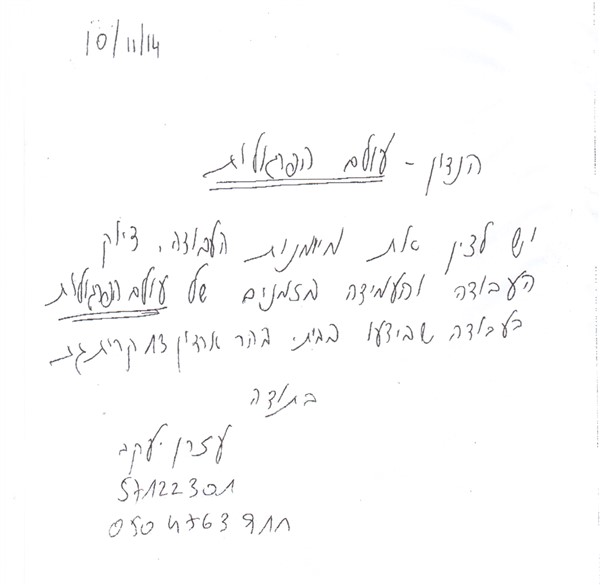 10/11/14
הנדון - עולם הפרגולות
יש לציין את מיומנות העבודה, דיוק
העבודה והעמידה בזמנים של עולם הפרגולות
בעבודה שביצעו בביתי בהר ארדון 13 קרית גת
בתודה
עזרן יעקב
57122301
050 4763 911